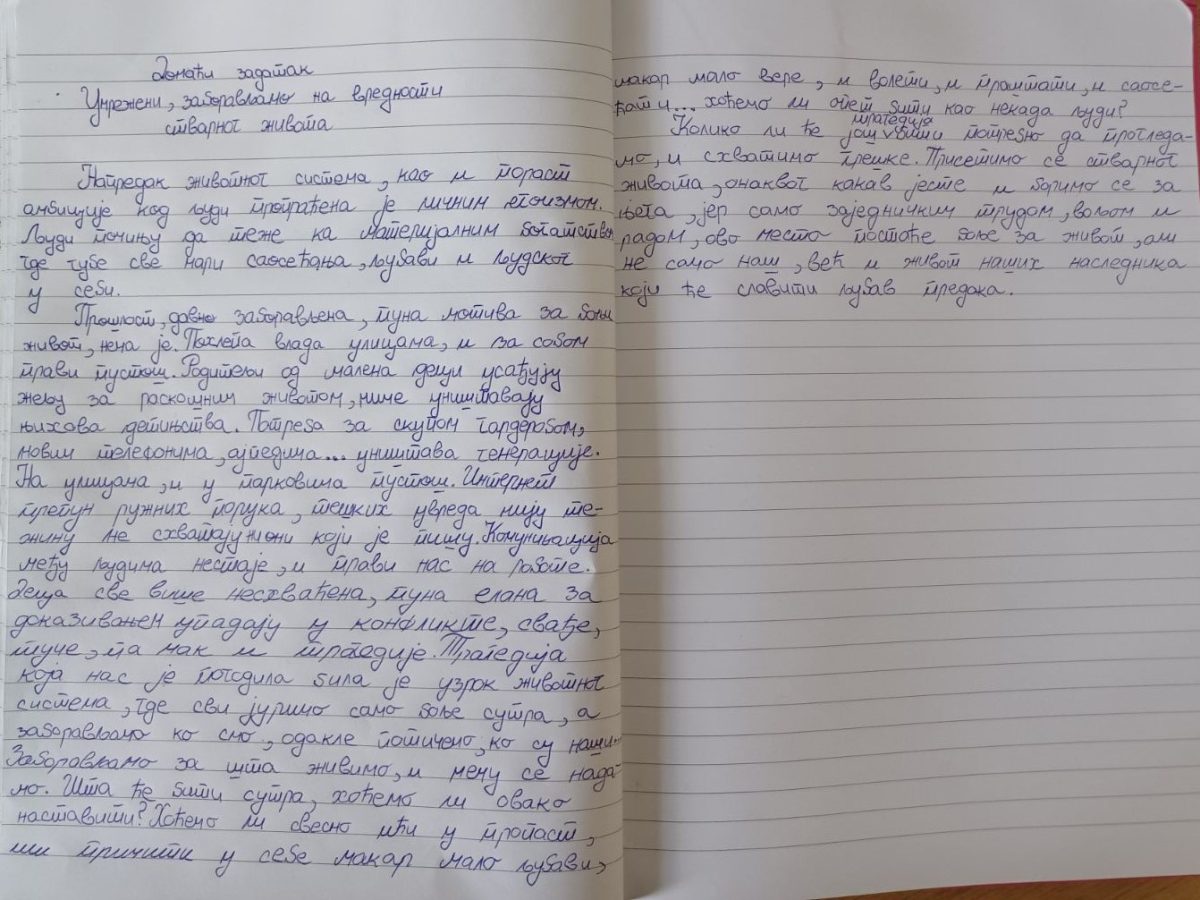 Домаћи задатак
Умрежени, заборављамо на вредности
стварног живота
Напредак животног система, као и пораст
амбиције код људи пропраћена је личним егоизмом.
Људи почињу да теже ка материјалним богатством
где губе све мари саосећања, љубави и људског
у себи.
Прошлост, давно заборављена, пуна мотива за бољи
живот, нема је. Похлепа влада улицама, и за собом
прави пустош. Родитељи од малена деци усађују
жељу за раскошним животом, тиме уништавају
њихова детињства. Потреба за скупом гардеробом,
новим телефонима, ајпедима... уништава генерације.
На улицама, и у парковима пустош. Интернет
препун ружних порука, тешких увреда чију те-
жину не схватају ни они који је пишу. Комуникација
међу људима нестаје, и прави нас на роботе.
Деца све више несхваћена, пуна елана за
доказивањем упадају у конфликте, свађе,
туче, па чак и трагедије. Трагедија
која нас је погодила била је узрок животног
система, где сви јуримо само боље сутра, а
заборављамо ко смо, одакле потичемо, ко су наши...
Заборављамо за шта живимо, и чему се нада-
мо. Шта ће бити сутра, хоћемо ли овако
наставити? Хоћемо ли свесно ићи у пропаст,
или пронаћи у себе макар мало љубави,
макар мало вере, и волети, и праштати, и саосе-
ћати... хоћемо ли опет бити као некада људи?
Колико ли ће још трагедија бити потребно да прогледа-
мо, и схватимо грешке. Присетимо се стварног
живота, онаквог какав јесте и боримо се за
њега, јер само заједничким трудом, вољом и
радом, ово место постаће боље за живот, али
не само наш, већ и живот наших наследника
који ће славити љубав предака.